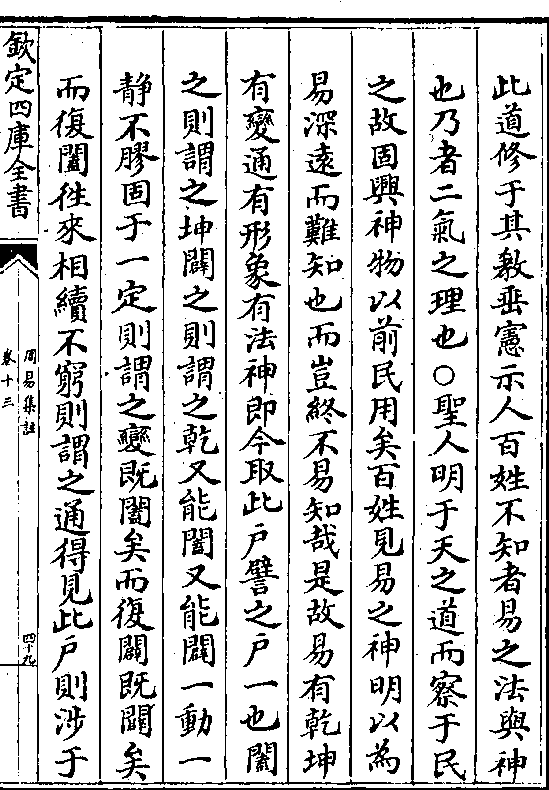 此道修于其教垂憲示人百姓不知者易之法與神
也乃者二氣之理也○聖人明于天之道而察于民
之故固興神物以前民用矣百姓見易之神明以為
易深遠而難知也而豈終不易知哉是故易有乾坤
有變通有形象有法神即今取此户譬之户一也闔
之則謂之坤闢之則謂之乾又能闔又能闢一動一
静不膠固于一定則謂之變既闔矣而復闢既闢矣
而復闔徃來相續不窮則謂之通得見此户則涉于
欽定四庫全書
周易集註
卷十三
四十九